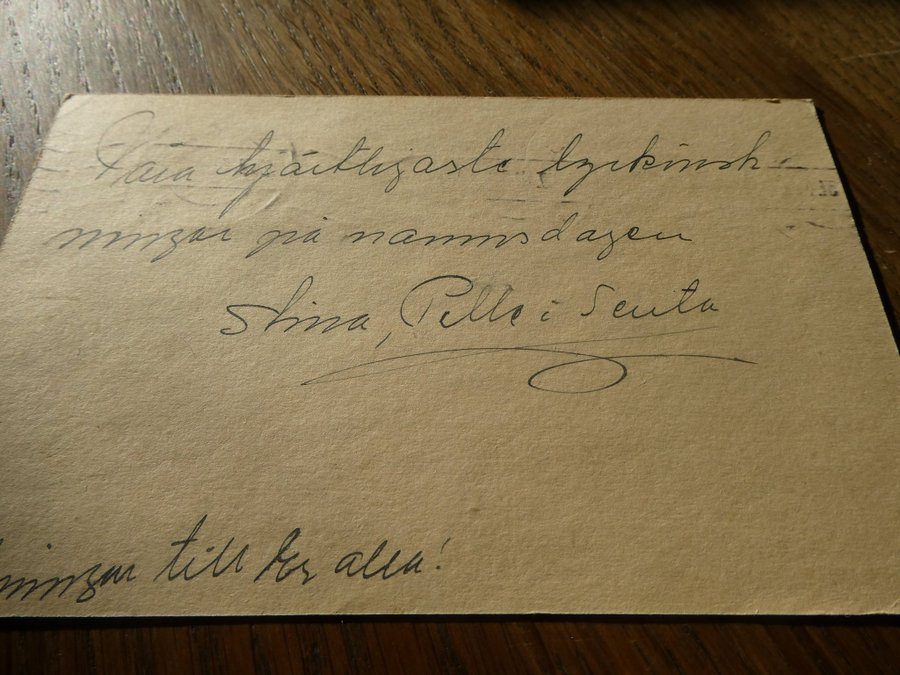 Våra hjärtligaste lyckönsk-
ningar på namnsdagen
Stina, Pelle i Senta
ningar till Er alla!